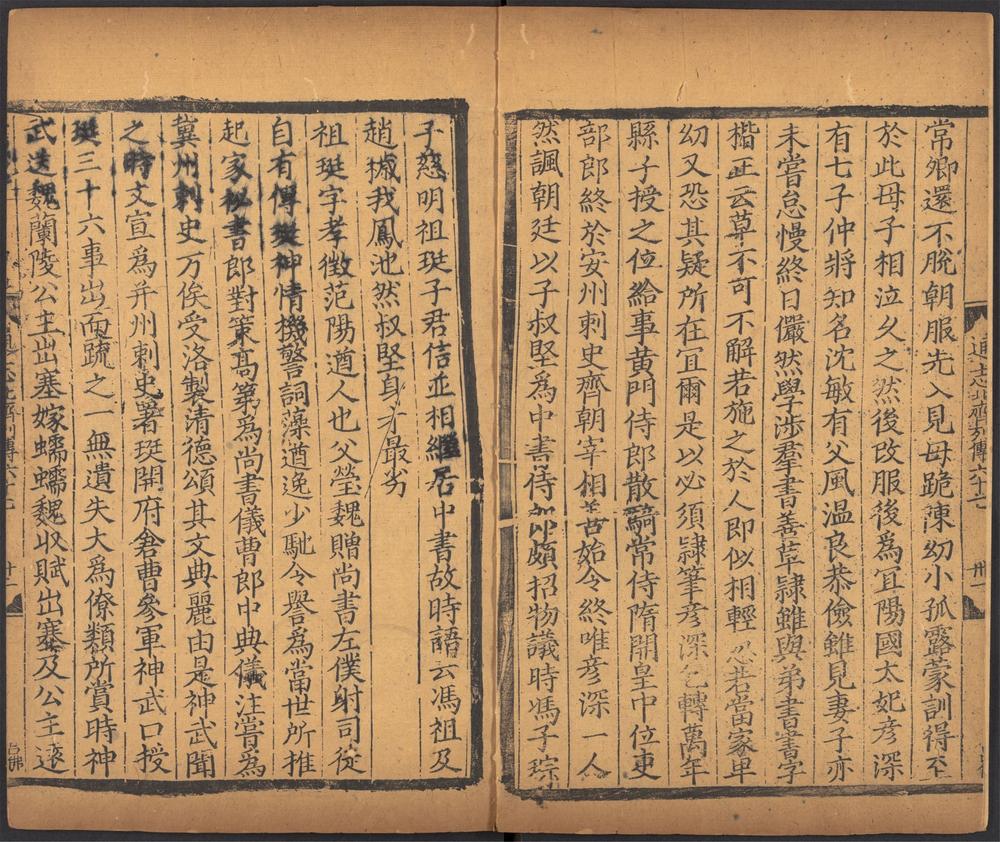 常卿還不脫朝服先入見母跪陳幼小孤露蒙訓得至
於此母子相泣久之然後改服後為宜陽國太妃彥深
有七子仲將知名沈敏有父風溫良恭儉雖見妻子亦
未嘗怠慢終日儼然學涉羣書善草隸雖與弟書書字
楷正云草不可不解若施之於人即似相輕忽若當家卑
幼又恐其疑所在宜爾是以必須隸筆彥深乞轉萬年
縣子授之位給事黃門侍郎散騎常侍隋開皇中位吏
部郎終於安州刺史齊朝宰相善始令終唯彥深一人
然諷朝廷以子叔堅為中書侍郎頗招物議時馮子琮
子慈明祖珽子君信並相繼居中書故時語云馮祖及
趙穢我鳳池然叔堅身才最劣
祖珽字孝徵范陽遒人也父瑩魏贈尚書左僕射司徒
自有傳珽神情機警詞藻遒逸少馳令譽為當世所推
起家秘書郎對策高第為尚書儀曹郎中典儀注嘗為
冀州刺史万俟受洛製清德頌其文典麗由是神武聞
之時文宣為并州刺史署珽開府倉曹參軍神武口授
珽三十六事出而疏之一無遺失大為僚類所賞時神
武送魏蘭陵公主出塞嫁蠕蠕魏收賦出塞及公主遠